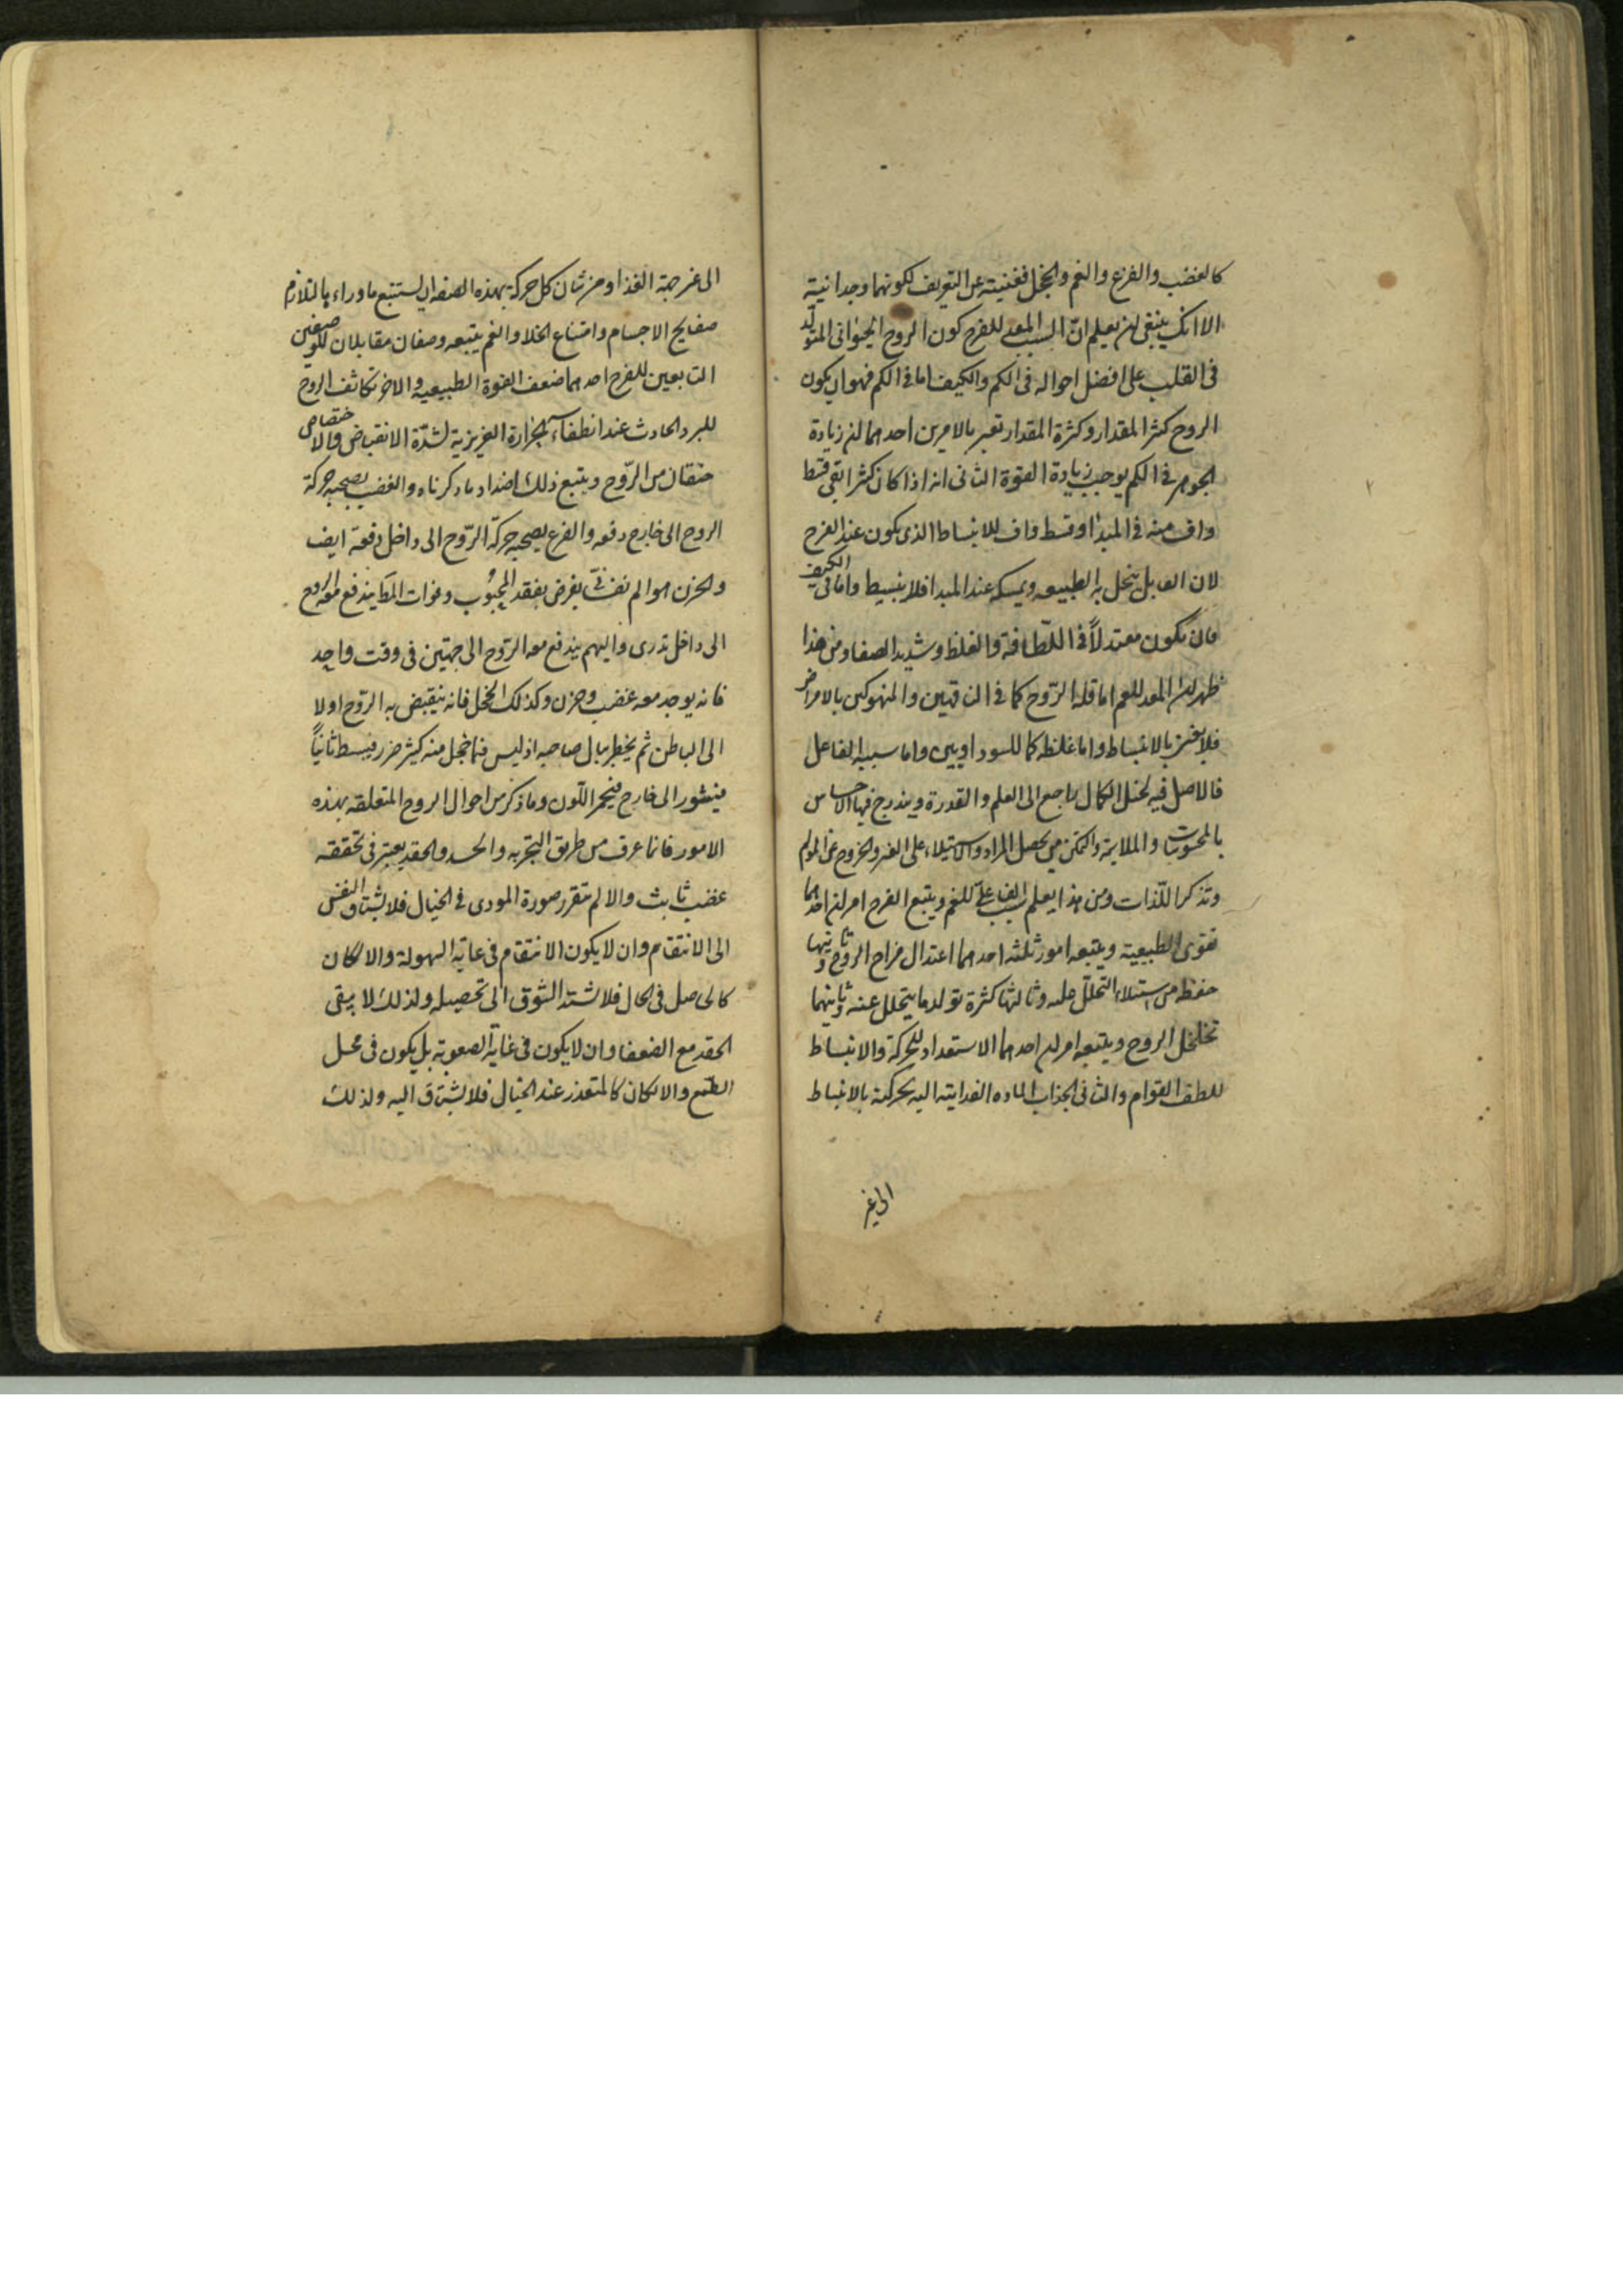 كالغضب والفزع والغم والخجل فغنيته عن التعريف لكونها وجدانية
الا انك ينبغى ان يعلم انّ السبب المعد للفرح كون الروح الحيوانى المتولّد
فى القلب على افضل احواله فى الكم والكيف اما فى الكم فهو ان يكون
الروح كثر المقدار وكثرة المقدار تعبر بالامرين احدهما ان زيادة
الجوهر فى الكم يوجب زيادة القوة الثانى انه اذا كان كثرا بقى قسط
واف منه فى المبدا وقسط واف للانبساط الذى يكون عند الفرح
لان القابل ينحل به الطبيعه ويمسكه عند المبدا فلا ينبسط واما فى الكيف
فان يكون معتدلاً فى اللّطافة والغلظ وشديد الصفا ومن هذا
ظهر ان المعد للغم اما قلة الرّوح كما فى الناقهين والمنهوكين بالامراض
فلا بالانبساط واما غلظه كما للسوداويين واما سببه الفاعل
فالاصل فيه تخيل الكمال راجع الى العلم والقدرة ويندرج فيها الاحساس
بالمحسوسات والملايمة والتمكن من تحصل المراد والاستيلاء على الغير والخروج عن المولم
وتذكر اللّذات ومن هذا يعلم السبب الفاعلىّ للغم ويتبع الفرح امران احدهما
تقوى الطبيعية ويتبعه امور ثلثه احدهما اعتدال مزاج الروح وثانيها
حفظه من استيلاء التحلّل عليه وثالثها كثرة تولد ما يتحلل عنه وثانيهما
تخلخل الروح ويتبعه امران احدهما الاستعداد للحركة والانبساط
للطف القوام والثانى انجذاب الماده الغدايته اليه بحركته بالانبساط
الى غير
الى غر جهة الغذا ومن شان كل حركة بهذه الصفه ان يستتبع ما وراء بالتلازم
صفايح الاجسام وامتناع الخلا والغم يتبعه وصفان مقابلان للوصفين
التابعين للفرح احدهما ضعف القوة الطبيعيه والاخر تكاثف الروح
للبرد الحادث عند انطفاء الحرارة الغريزية لشدّة الانقباض والاختصاص
من الرّوح ويتبع ذلك اضداد ما ذكرناه والغضب يصحبه حركة
الروح الى خارج دفعه والفزع يصحبه حركة الرّوح الى داخل دفعة ايضا
والحزن هو الم نفسانى يعرض بفقد المحبوب وفوات المطا يندفع معه الروح
الى داخل تدرى والهم يندفع معه الروح الى جهتين فى وقت واحد
فانه يوجد معه غضب وحزن وكذلك الخجل فانه ينقبض به الرّوح اولا
الى الباطن ثم يخطر ببال صاحبه اذ ليس فيما خجل منه كثير ضرر فينبسط ثانياً
فيثور الى خارج فيحمر اللّون وما ذكر من احوال الروح المتعلقه بهذه
الامور فانما عرف من طريق التجربه والحسد والحقد يعتبر فى تحققه
غضب ثابت والا لم تتقرر صورة الموذى فى الخيال فلا يشتاق النفس
الى الانتقام وان لا يكون الانتقام فى غاية السهولة والا لكان
كالحاصل فى الحال فلا تشتد الشوق الى تحصيله ولذلك لا يبقى
الحقد مع الضعفا وان لا يكون فى غاية الصعوبة بل يكون فى محل
الطمع والا لكان كالمتعذر عند الخيال فلا يشتاق اليه ولذلك